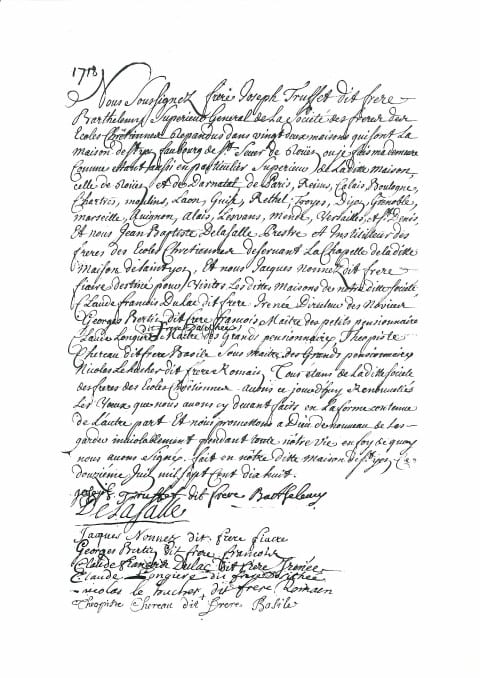 1718
Nous Soussignez frère Joseph Truffet dit frere
Barthelemy Superieur General de La Société des freres des
Ecoles Chrétiennes Repandus dans vingt deux maisons qui sont La
maison de St yon faubourg de St Sever de Roüen ou je fais ma demeure
Comme étant aussi en particulier Superieur de La ditte maison,
celle de Roüen, et de Darnatal de Paris, Reims, Calais, Boulogne,
Chartres, moulins, Laon, Guise, Rethel, Troyes, Dijon, Grenoble,
marseille, Avignon, Alais, Les vans, mende, Versailles, et St Denis,
Et nous Jean Baptiste De La Salle Prestre et Instituteur des
freres des Ecoles Chretiennes desservant La Chapelle de la ditte
maison de saint yon, Et nous Jacques Nonnez dit frere
fiacre destiné pour Visiter Les dittes maisons de notre ditte société
Claude francois Du Lac dit frere Irenée Directeur des Novices
Georges Bertin dit frere francois Maitre des petits pensionnaires
Claude Longiere dit frere Maitre des Grands pensionnaires Theopiste
Chereau dit frere Basile Sous maitre des Grands pensionnaires
Nicolas Le Rucher dit frere Romain, Tous etans de La ditte societe
des freres des Ecoles Chrétiennes avons ce jourd'huy Renouvellés
Les Vœux que nous avons cy devant faits en La forme contenue
de L'autre part Et nous promettons a Dieu de nouveau de Les
garder inviolablement pendant toute notre vie en foy de quoy
nous avons signé. fait en notre ditte maison de St yon Ce
douzième mil sept Cent dix huit.
joseph Truffet dit frere Barthelemy
De La Salle
Jaques Nonnez dit frere fiacre
Georges Bertin dit frere francois
Claude François Dulac dit frere Irenée
Claude Longiere dit frere
nicolas le Rucher dit frere Romain
Theopiste Chereau dit frere Basile